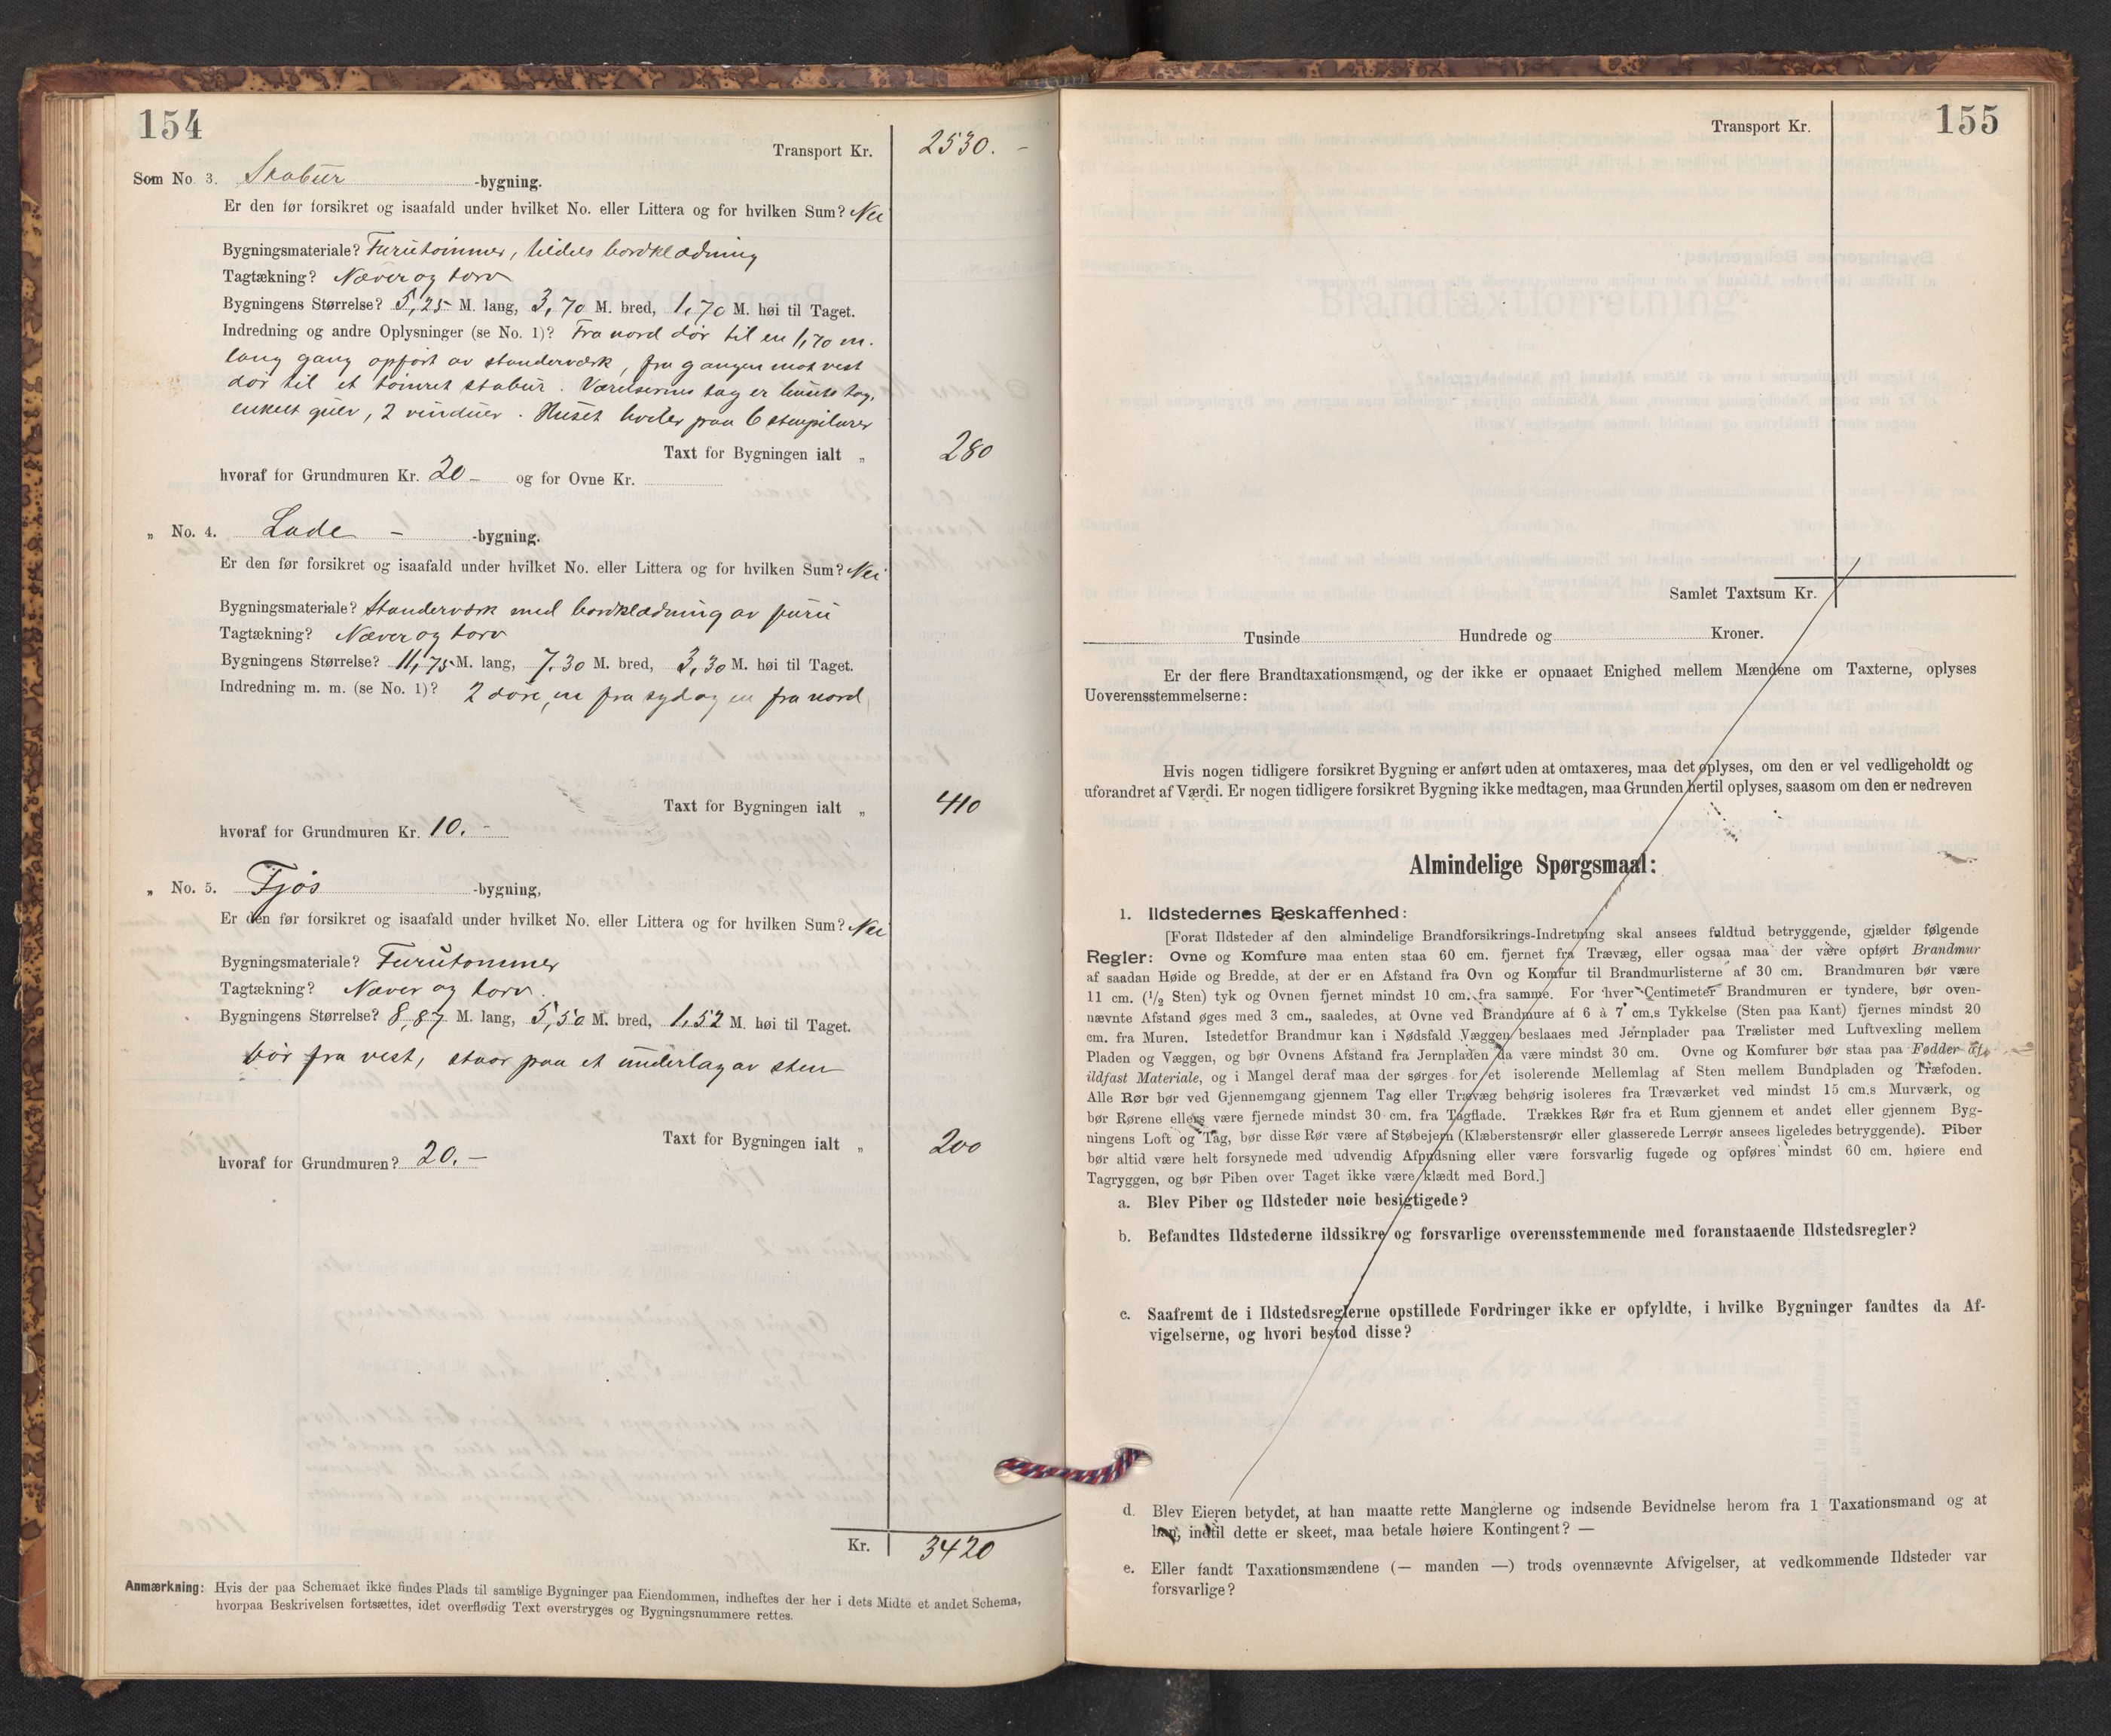 154
Transport Kr. 2530. -
Som No. 3. Stabur -bygning.
Er den før forsikret og isaafald under hvilket No. eller Littera og for hvilken Sum? Nei
Bygningsmateriale? Furutømmer, tildels bordklædning
Tagtækning? Næver og torv
Bygningens Størrelse? 5,25 M. lang, 3,70 M. bred, 1,70 M. høi til Taget.
Indredning og andre Oplysninger (se No. 1)? Fra nord dør til en 1,70 m.
lang gang opført av standerværk, fra gangen mot vest
dør til et tømret stabur. Værelsernes tag er husets tag,
enkelt gulv, 2 vinduer. Huset hviler paa 6 stenpilarer
Taxt for Bygningen ialt „ 280
hvoraf for Grundmuren Kr. 20 - og for Ovne Kr.
„ No. 4. Lade - -bygning.
Er den før forsikret og isaafald under hvilket No. eller Littera og for hvilken Sum? Nei
Bygningsmateriale? Standerværk med bordklædning av furu
Tagtækning? Næver og torv
Bygningens Størrelse? 11,75 M. lang, 7,30 M. bred, 3,30 M. høi til Taget.
Indredning m. m. (se No. 1)? 2 døre, en fra syd og en fra nord
Taxt for Bygningen ialt „ 410
hvoraf for Grundmuren Kr. 10. -
„ No. 5. Fjøs -bygning,
Er den før forsikret og isaafald under hvilket No. eller Littera og for hvilken Sum? Nei
Bygningsmateriale? Furutømmer
Tagtækning? Næver og torv.
Bygningens Størrelse? 8,87 M. lang, 5,50 M. bred, 1,52 M. høi til Taget.
Dør fra vest, staar paa et underlag av sten
Taxt for Bygningen ialt „ 200
hvoraf for Grundmuren? 20. –
Kr. 3420
Anmærkning: Hvis der paa Schemaet ikke findes Plads til samtlige Bygninger paa Eiendommen, indheftes der her i dets Midte et andet Schema,
hvorpaa Beskrivelsen fortsættes, idet overflødig Text overstryges og Bygningsnummere rettes.
155
Transport Kr.
Samlet Taxtsum Kr.
Tusinde Hundrede og Kroner.
Er der flere Brandtaxationsmænd, og der ikke er opnaaet Enighed mellem Mændene om Taxterne, oplyses
Uoverensstemmelserne:
Hvis nogen tidligere forsikret Bygning er anført uden at omtaxeres, maa det oplyses, om den er vel vedligeholdt og
uforandret af Værdi. Er nogen tidligere forsikret Bygning ikke medtagen, maa Grunden hertil oplyses, saasom om den er nedreven
Almindelige Spørgsmaal:
1. Ildstedernes Beskaffenhed:
[Forat Ildsteder af den almindelige Brandforsikrings-Indretning skal ansees fuldtud betryggende, gjælder følgende
Regler: Ovne og Komfure maa enten staa 60 cm. fjernet fra Trævæg, eller ogsaa maa der være opført Brandmur
af saadan Høide og Bredde, at der er en Afstand fra Ovn og Komfur til Brandmurlisterne af 30 cm. Brandmuren bør være
11 cm. (1/2 Sten) tyk og Ovnen fjernet mindst 10 cm. fra samme. For hver Centimeter Brandmuren er tyndere, bør oven-
nævnte Afstand øges med 3 cm., saaledes, at Ovne ved Brandmure af 6 à 7 cm.s Tykkelse (Sten paa Kant) fjernes mindst 20
cm. fra Muren. Istedetfor Brandmur kan i Nødsfald Væggen beslaaes med Jernplader paa Trælister med Luftvexling mellem
Pladen og Væggen, og bør Ovnens Afstand fra Jernpladen da være mindst 30 cm. Ovne og Komfurer bør staa paa Fødder af
ildfast Materiale, og i Mangel deraf maa der sørges for et isolerende Mellemlag af Sten mellem Bundpladen og Træfoden.
Alle Rør bør ved Gjennemgang gjennem Tag eller Trævæg behørig isoleres fra Træværket ved mindst 15 cm.s Murværk, og
bør Rørene ellers være fjernede mindst 30 cm. fra Tagflade. Trækkes Rør fra et Rum gjennem et andet eller gjennem Byg-
ningens Loft og Tag, bør disse Rør være af Støbejern (Klæberstensrør eller glasserede Lerrør ansees ligeledes betryggende). Piber
bør altid være helt forsynede med udvendig Afpudsning eller være forsvarlig fugede og opføres mindst 60 cm. høiere end
Tagryggen, og bør Piben over Taget ikke være klædt med Bord.]
a. Blev Piber og Ildsteder nøie besigtigede?
b. Befandtes Ildstederne ildssikre og forsvarlige overensstemmende med foranstaaende Ildstedsregler?
c. Saafremt de i Ildstedsreglerne opstillede Fordringer ikke er opfyldte, i hvilke Bygninger fandtes da Af-
vigelserne, og hvori bestod disse?
d. Blev Eieren betydet, at han maatte rette Manglerne og indsende Bevidnelse herom fra 1 Taxationsmand og at
han, indtil dette er skeet, maa betale høiere Kontingent? —
e. Eller fandt Taxationsmændene (— manden —) trods ovennævnte Afvigelser, at vedkommende Ildsteder var
forsvarlige?